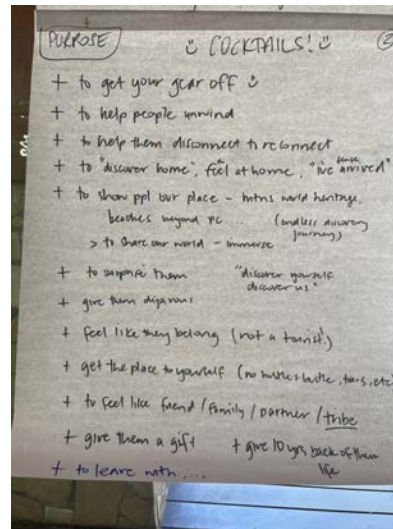 PURPOSE
COCKTAILS!
+ to get your gear off
+ to help people unwind
+ to help them disconnect to reconnect
+ to "discover home", feel at home, "ive arrived"
+ to show ppl our place - mtns world heritage,
beaches beyond PC.... (endless discovery
journey)
> to share our world - immerse
+ to surprise them "discover yourself
discover us"
+ give them dejavous
+ feel like they belong (not a tourist!)
+ get the place to yourself (no hustle + bustle, tours, etc
+ to feel like friend / family / partner / tribe
+ give them a gift + give 10 yrs back of their
life
+ to leave with ....